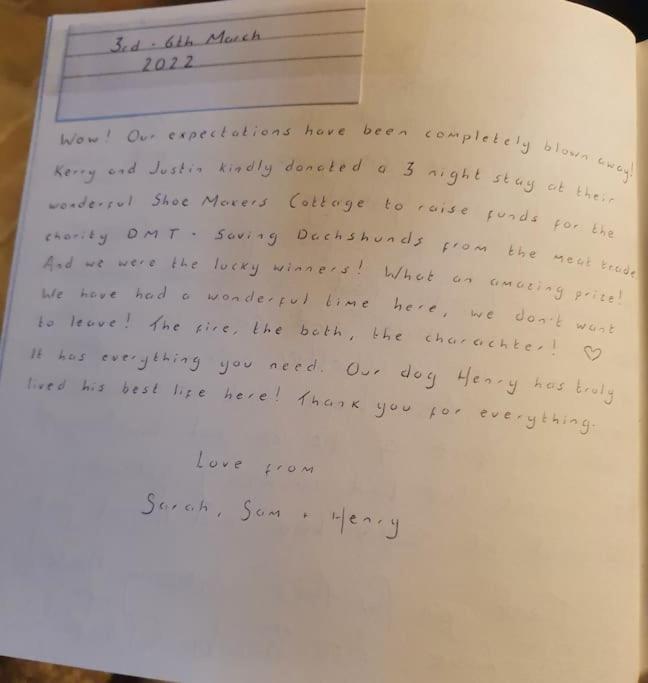 3rd - 6th March
2022
Wow! Our expectations have been completely blown away!
Kerry and Justin kindly donated a 3 night stay at their
wonderful Shoe Makers Cottage to raise funds for the
charity DMT - Saving Dachshunds from the meat trade
And we were the lucky winners! What an amazing prize!
We have had a wonderful time here, we don't want
to leave! The fire, the bath, the charachter! ♡
It has everything you need. Our dog Henry has truly
lived his best life here! Thank you for everything.
Love from
Sarah, Sam + Henry